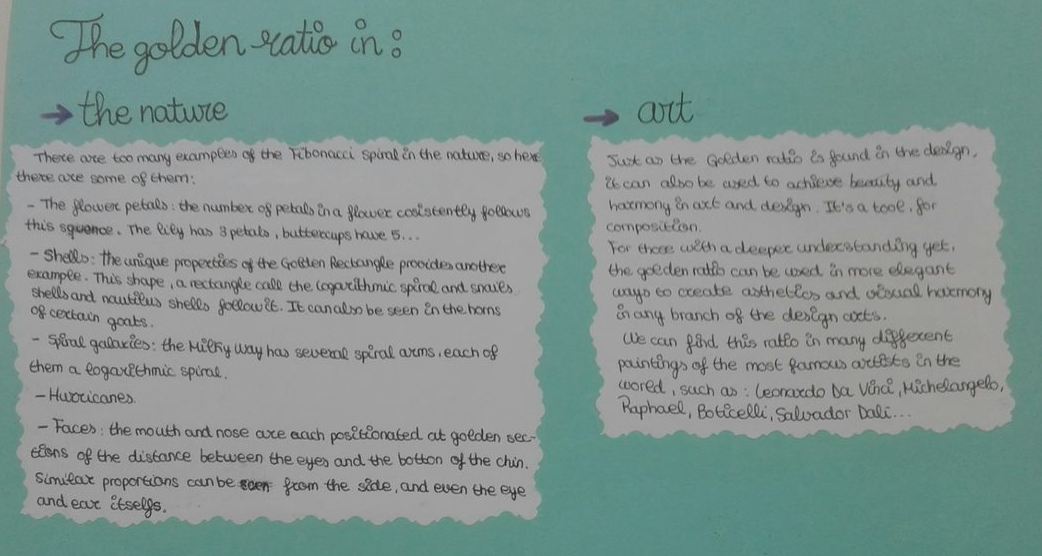 The golden ratio in:
→ the nature
There are too many examples of the Fibonacci spiral in the nature, so here
there are some of them:
- The flower petals: the number of petals in a flower cosistently follows
this squence. The lily has 3 petals, buttercups have 5...
- Shells: the unique properties of the Golden Rectangle provides another
example. This shape, a rectangle call the logarithmic spiral and snails
shells and nautilus shells follow it. It can also be seen in the horns
of certain goats.
- Spiral galaxies: the Milky Way has several spiral arms, each of
them a logarithmic spiral.
- Hurricanes.
- Faces: the mouth and nose are each positionated at golden sec-
tions of the distance between the eyes and the botton of the chin.
Similar proportions can be seen from the side, and even the eye
and ear itselfs.
→ art
Just as the Golden ratio is found in the design,
it can also be used to achieve beauty and
harmony in art and design. It's a tool, for
composition.
For those with a deeper understanding yet,
the golden ratio can be used in more elegant
ways to create asthetics and visual harmony
in any branch of the design arts.
We can find this ratio in many different
paintings of the most famous artists in the
wored, such as: Leonardo Da Vinci, Michelangelo,
Raphael, Boticelli, Salvador Dalí...